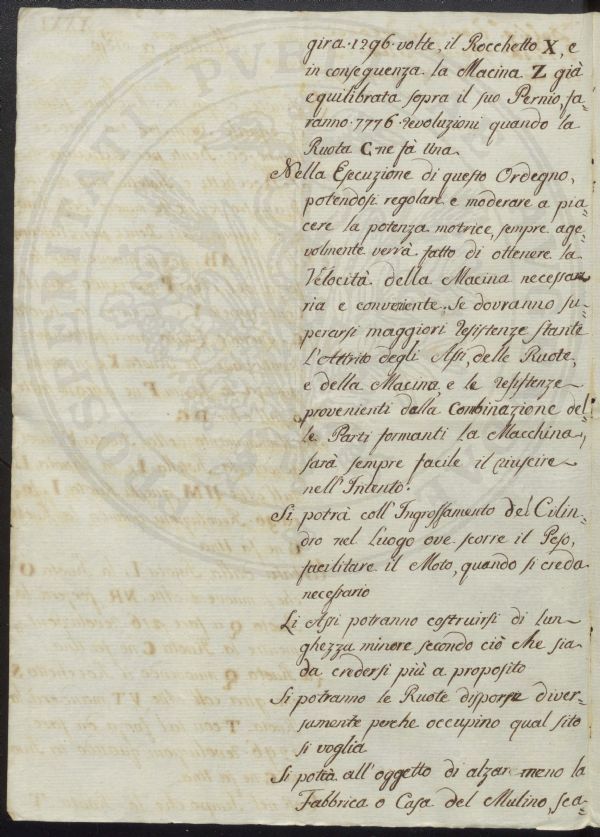 gira·1296·volte, il Rocchetto X, e
in conseguenza la Macina Z già
equilibrata sopra il suo Pernio, fa=
ranno·7776·revoluzioni quando la
Ruota C ne fà Una
Nella Esecuzione di questo Ordegno,
potendosi regolare e moderare a pia=
cere la potenza motrice, sempre age=
volmente verrà fatto di ottenere la
Velocità della Macina necessa=
ria e conveniente. Se dovranno su=
perarsi maggiori resistenze stante
L'Attrito degli Assi, delle Ruote,
e della Macina, e le resistenze
provenienti dalla Combinazione del=
le Parti formanti la Macchina,
sarà sempre facile il riuscire
nell'Intento.
Si potrà coll'Ingrossamento del Cilin=
dro nel Luogo ove scorre il Peso,
facilitare il Moto, quando si creda
necessario
Li Assi potranno costruirsi di lun=
ghezza minore secondo ciò che sia
da credersi più a proposito
Si potranno le Ruote disporre diver=
samente perche occupino qual sito
si voglia
Si potrà all'oggetto di alzar meno la
Fabbrica o Casa del Mulino, sca=
PROSPERITATI PVBL